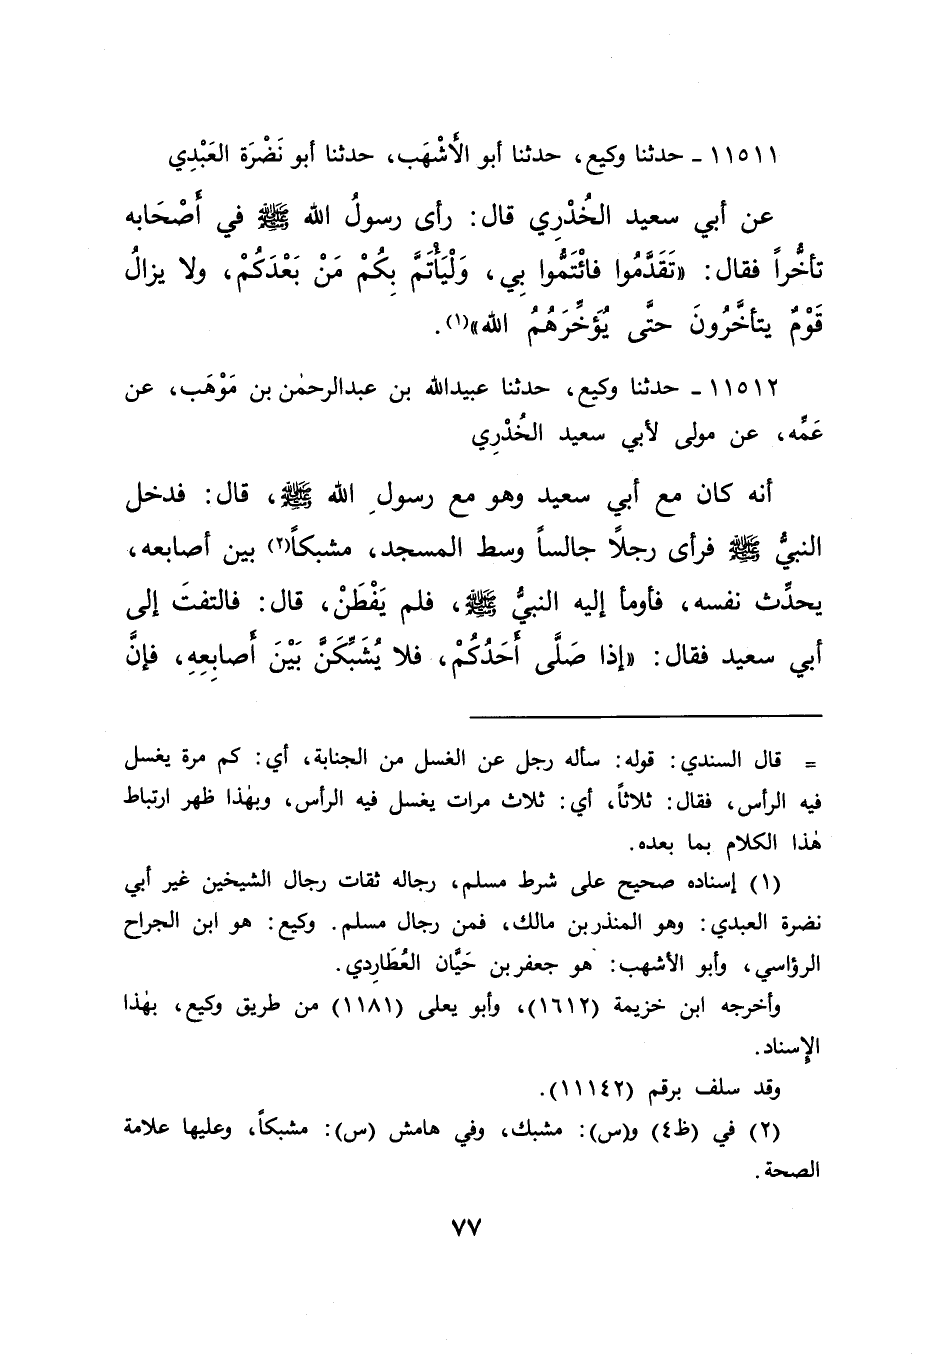 ١١٥١١ ـ حدثنا وكيع، حدثنا أبو الأَشْهَب، حدثنا أبو نَضْرَة العَبْدِي
عن أبي سعيد الخُدْرِي قال: رأى رسولُ الله ﷺ في أَصْحَابه
تأخُّراً فقال: «تَقَدَّمُوا فائْتَمُّوا بِي، وَلْيَأْتَمَّ بِكُمْ مَنْ بَعْدَكُمْ، ولا يزالُ
قَوْمٌ يتأخَّرُونَ حتَّى يُؤَخِّرَهُمُ الله»(١).
١١٥١٢ ـ حدثنا وكيع، حدثنا عبيدالله بن عبدالرحمٰن بن مَوْهَب، عن
عَمِّه، عن مولى لأبي سعيد الخُدْرِي
أنه كان مع أبي سعيد وهو مع رسولِ الله ﷺ، قال: فدخل
النبيُّ ﷺ فرأى رجلًا جالساً وسط المسجد، مشبكاً(٢) بين أصابعه،
يحدِّث نفسه، فأومأ إليه النبيُّ ﷺ، فلم يَفْطَنْ، قال: فالتفتَ إلى
أبي سعيد فقال: «إذا صَلَّى أَحَدُكُمْ، فلا يُشَبِّكَنَّ بَيْنَ أَصابِعِهِ، فإنَّ
= قال السندي: قوله: سأله رجل عن الغسل من الجنابة، أي: كم مرة يغسل
فيه الرأس، فقال: ثلاثاً، أي: ثلاث مرات يغسل فيه الرأس، وبهٰذا ظهر ارتباط
هٰذا الكلام بما بعده.
(١) إسناده صحيح على شرط مسلم، رجاله ثقات رجال الشيخين غير أبي
نضرة العبدي: وهو المنذر بن مالك، فمن رجال مسلم. وكيع: هو ابن الجراح
الرؤاسي، وأبو الأشهب: هو جعفر بن حَيَّان العُطَارِدي.
وأخرجه ابن خزيمة (١٦١٢)، وأبو يعلى (١١٨١) من طريق وكيع، بهٰذا
الإِسناد.
وقد سلف برقم (١١١٤٢).
(٢) في (ظ٤) و(س): مشبك، وفي هامش (س): مشبكاً، وعليها علامة
الصحة.
٧٧